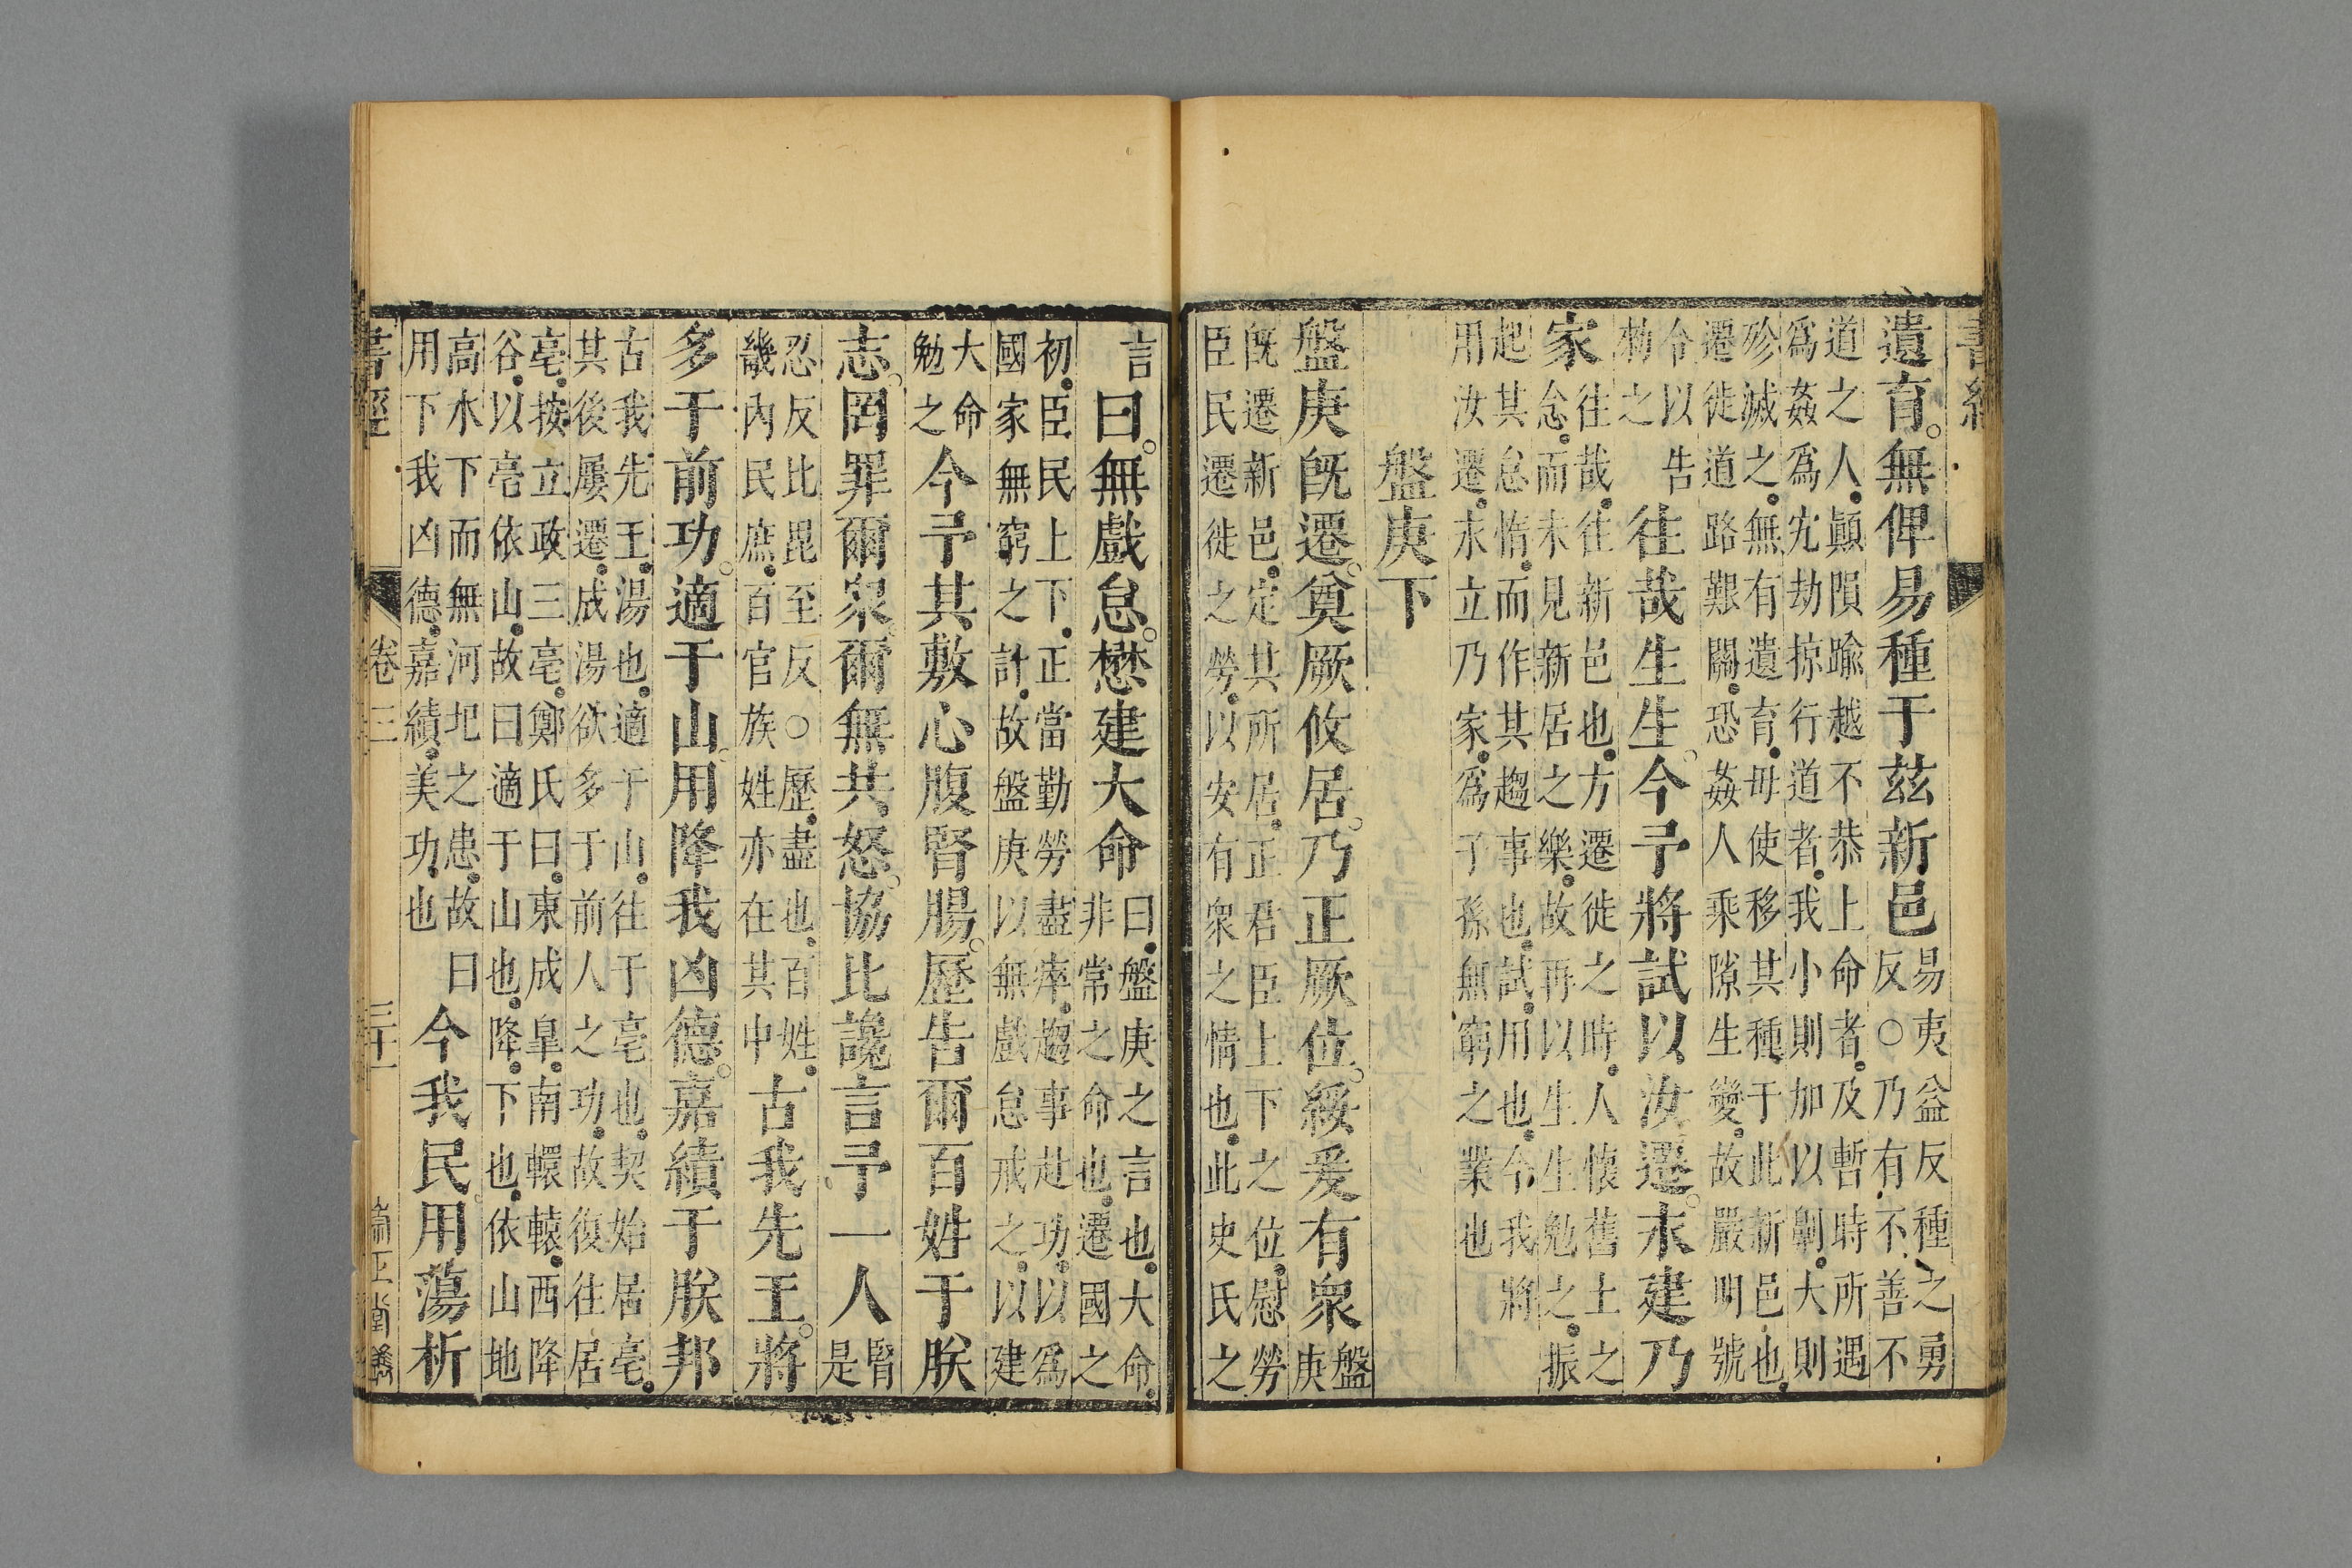 書經
遺育。無俾易種于茲新邑
易夷益反種之勇
反○乃有不善不
道之人。顚隕踰越不恭上命者。及暫時所遇
爲姦爲宄劫掠行道者。我小則加以劓。大則
殄滅之。無有遺育。毋使移其種。于此新邑也。
遷徙道路艱關。恐姦人乘隙生變。故嚴明號
令以告
勑之
往哉生生。今予將試以汝遷。永建乃
家
往哉。往新邑也。方遷徙之時。人懷舊土之
念。而未見新居之樂。故再以生生勉之。振
起其怠惰。而作其趨事也。試。用也。今我將
用汝遷。永立乃家。爲子孫無窮之業也
盤庚下
盤庚旣遷。奠厥攸居。乃正厥位。綏爰有衆
盤
庚
旣遷新邑。定其所居。正君臣上下之位。慰勞
臣民遷徙之勞。以安有衆之情也。此史氏之
言
曰。無戲怠。懋建大命
曰。盤庚之言也。大命。
非常之命也。遷國之
初。臣民上下。正當勤勞盡瘁。趨事赴功。以爲
國家無窮之計。故盤庚以無戲怠戒之。以建
大命
勉之
今予其敷心腹腎腸。歷告爾百姓于朕
志。罔罪爾衆爾無共怒。協比讒言予一人
腎
是
忍反比毘至反○歷。盡也。百姓。
畿內民庶。百官族姓亦在其中
古我先王。將
多于前功。適于山。用降我凶德。嘉績于朕邦
古我先王。湯也。適于山。往于亳也。契始居亳。
其後屢遷。成湯欲多于前人之功。故復往居
亳。按立政三亳。鄭氏曰。東成皐。南轘轅。西降
谷。以亳依山。故曰適于山也。降。下也。依山地
高水下而無河圯之患。故曰
用下我凶德。嘉績。美功也
今我民用蕩析
書經
卷三
三十一